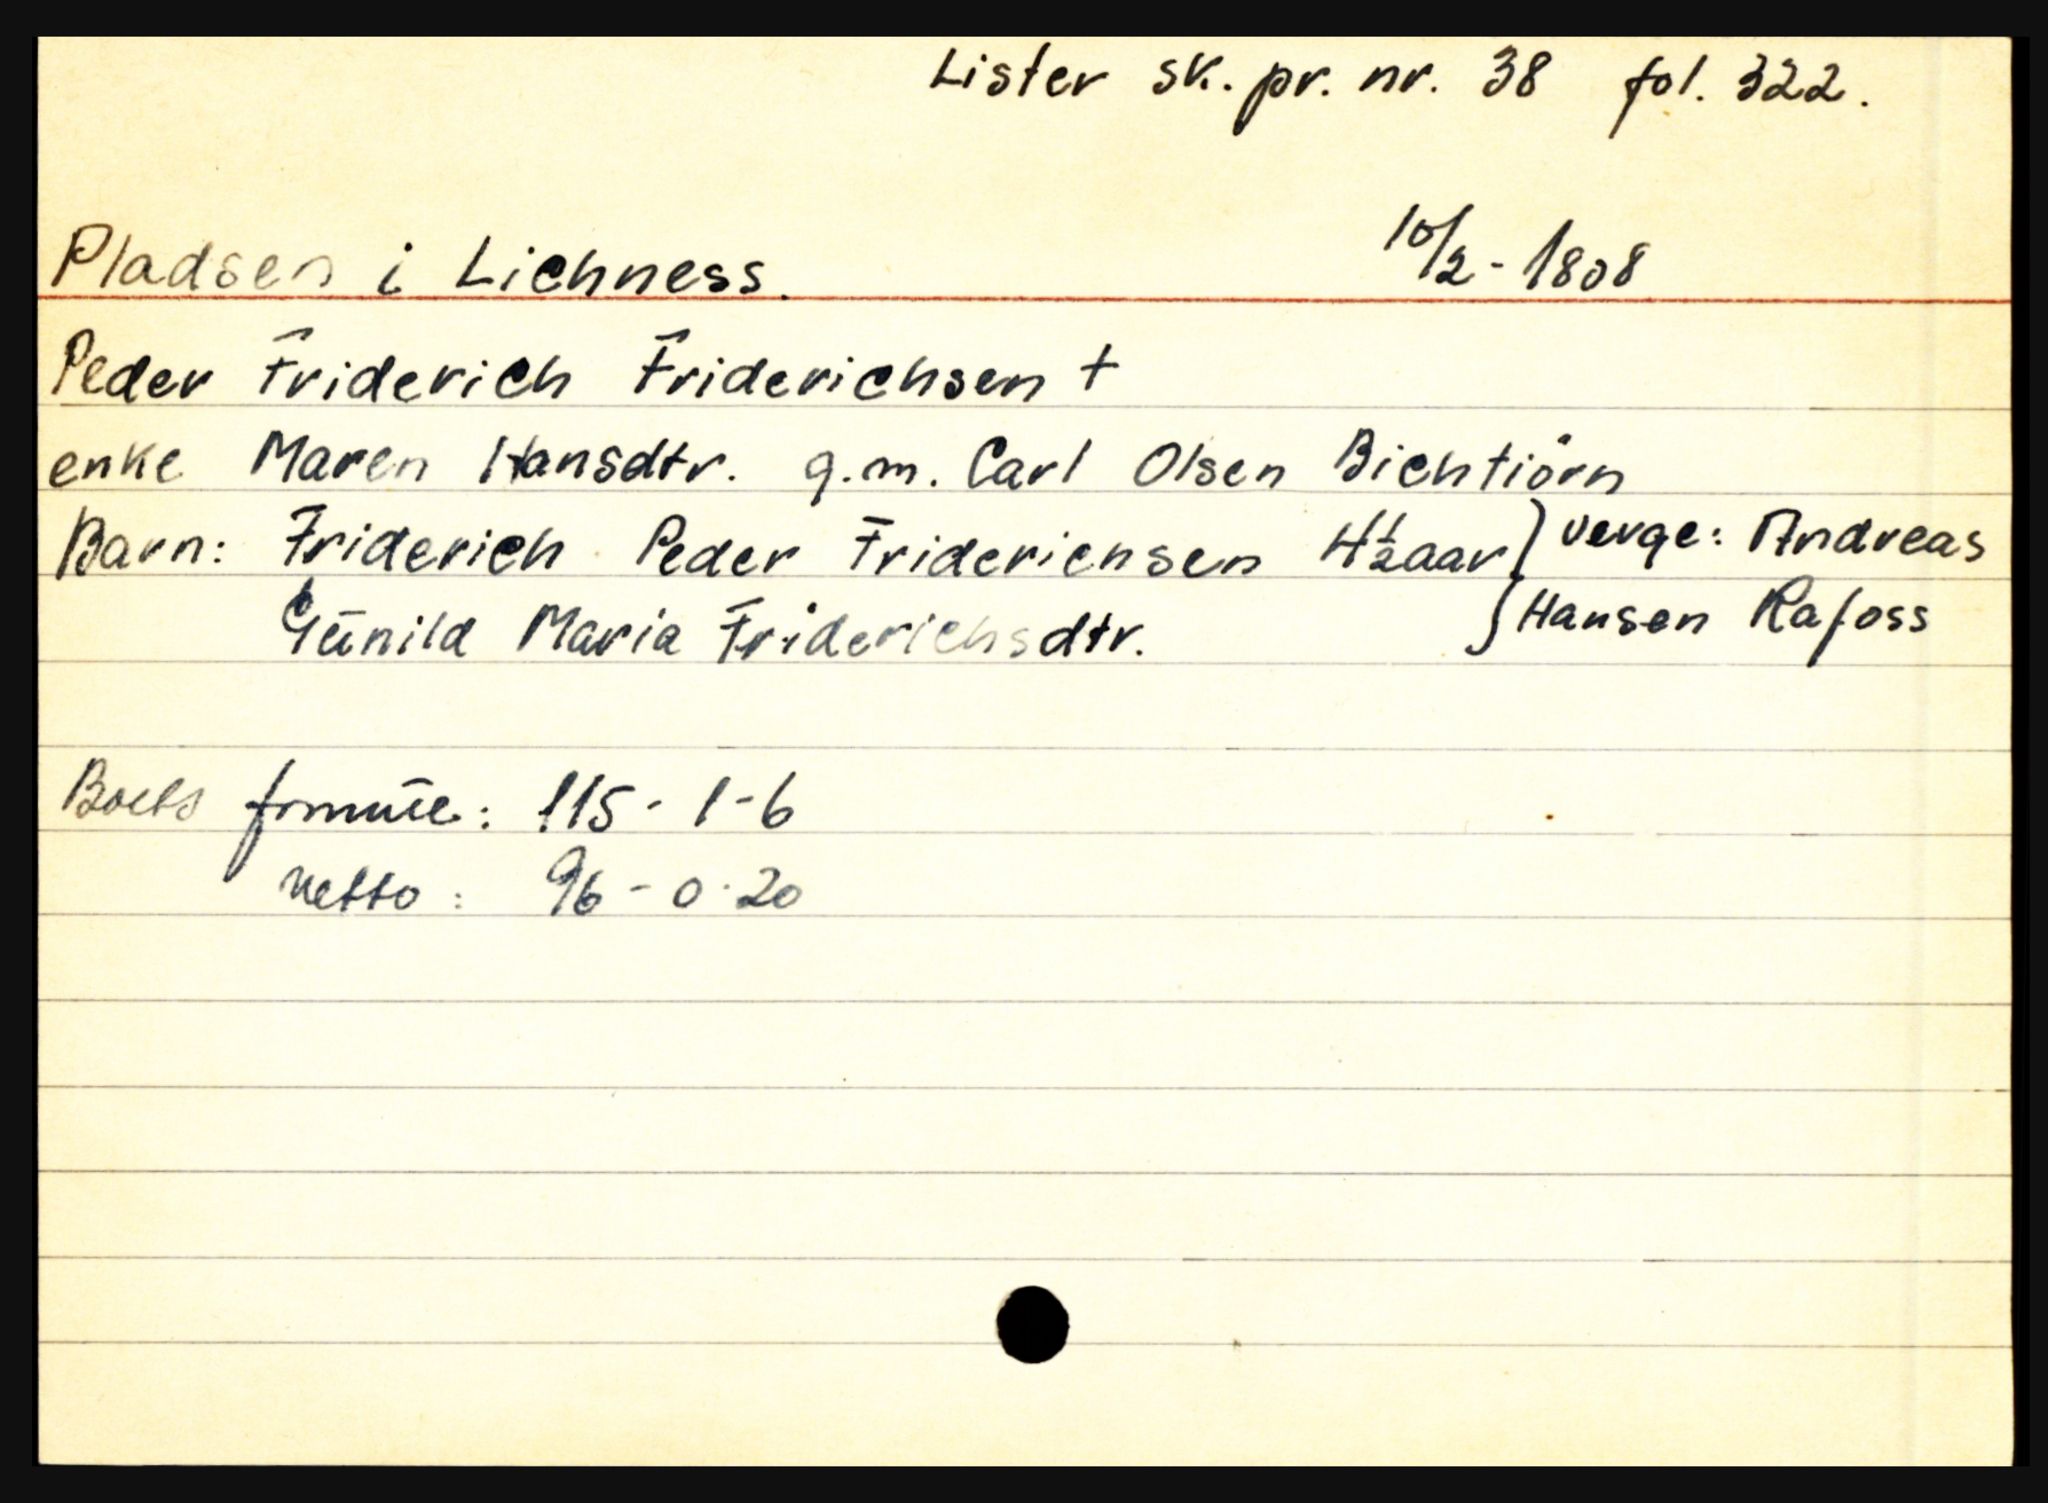 Lister sk. pr. nr. 38 fol. 322.
Pladsen i Lichness. 10/2 - 1808
Peder Friderich Friderichsen +
enke Maren Hansdtr. g.m. Carl Olsen Bichtiörn
Barn: Friderich Peder Friderichsen 4½ aar } verge: Andreas
Gūnild Maria Friderichsdtr. } Hansen Rafoss
Boets formūe: 115 - 1 - 6
netto: 96 - 0 - 20